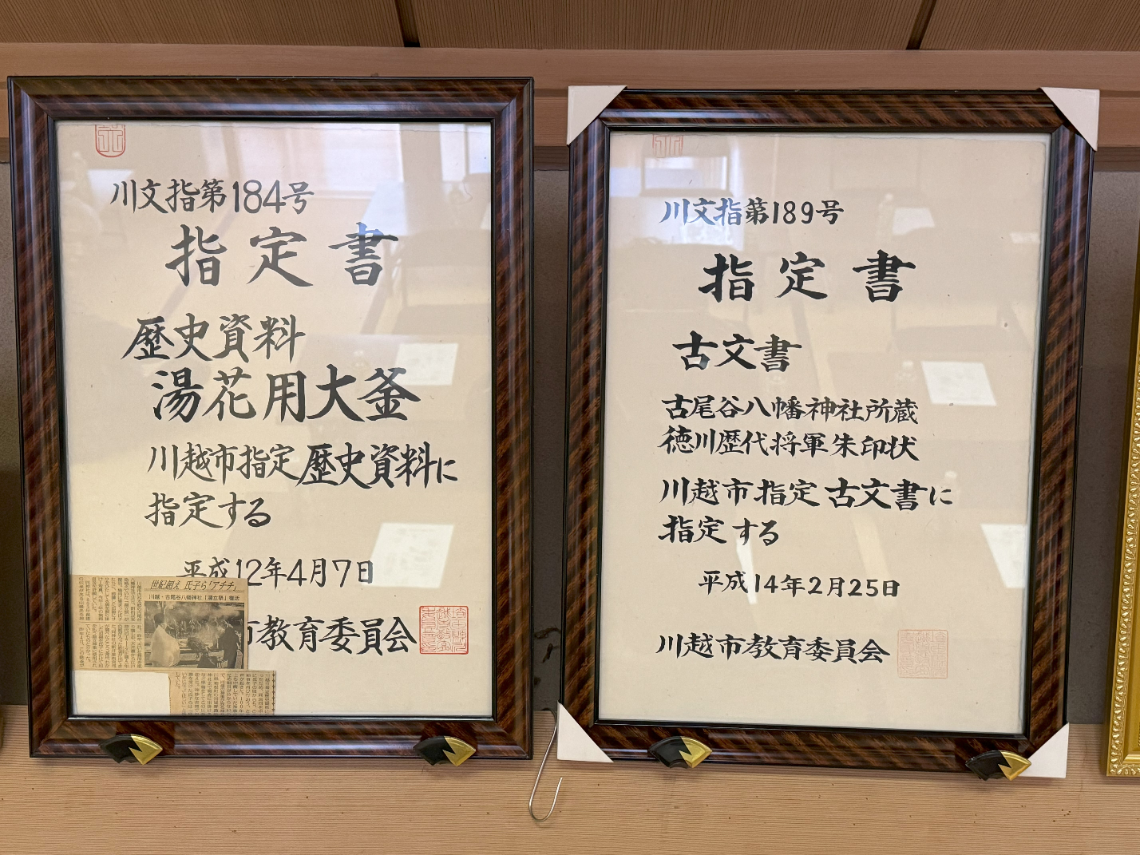 川文指第184号
指定書
歴史資料
湯花用大釜
川越市指定歴史資料に
指定する
平成12年4月7日
市教育委員会
世紀超え 氏子ら「アチチ」
川越・古尾谷八幡神社「湯立祭」復活
川文指第189号
指定書
古文書
古尾谷八幡神社所蔵
徳川歴代将軍朱印状
川越市指定古文書に
指定する
平成14年2月25日
川越市教育委員会